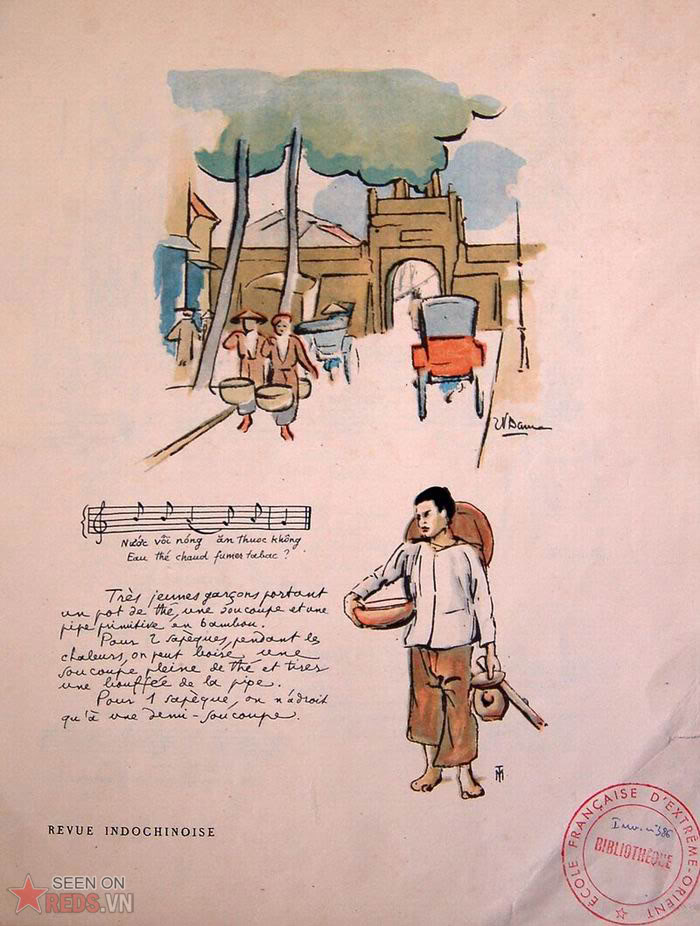 Nước vối nóng ăn thuoc không
Eau thé chaud fumer tabac ?
Très jeunes garçons portant
un pot de thé, une soucoupe et une
pipe primitive en bambou.
Pour 2 sapèques, pendant les
chaleurs, on peut boire une
soucoupe pleine de thé et tirer
une bouffée de la pipe.
Pour 1 sapèque, on n'a droit
qu'à une demi-soucoupe.
REVUE INDOCHINOISE
ÉCOLE FRANÇAISE D'EXTRÊME-ORIENT
BIBLIOTHÈQUE
SEEN ON
REDS.VN